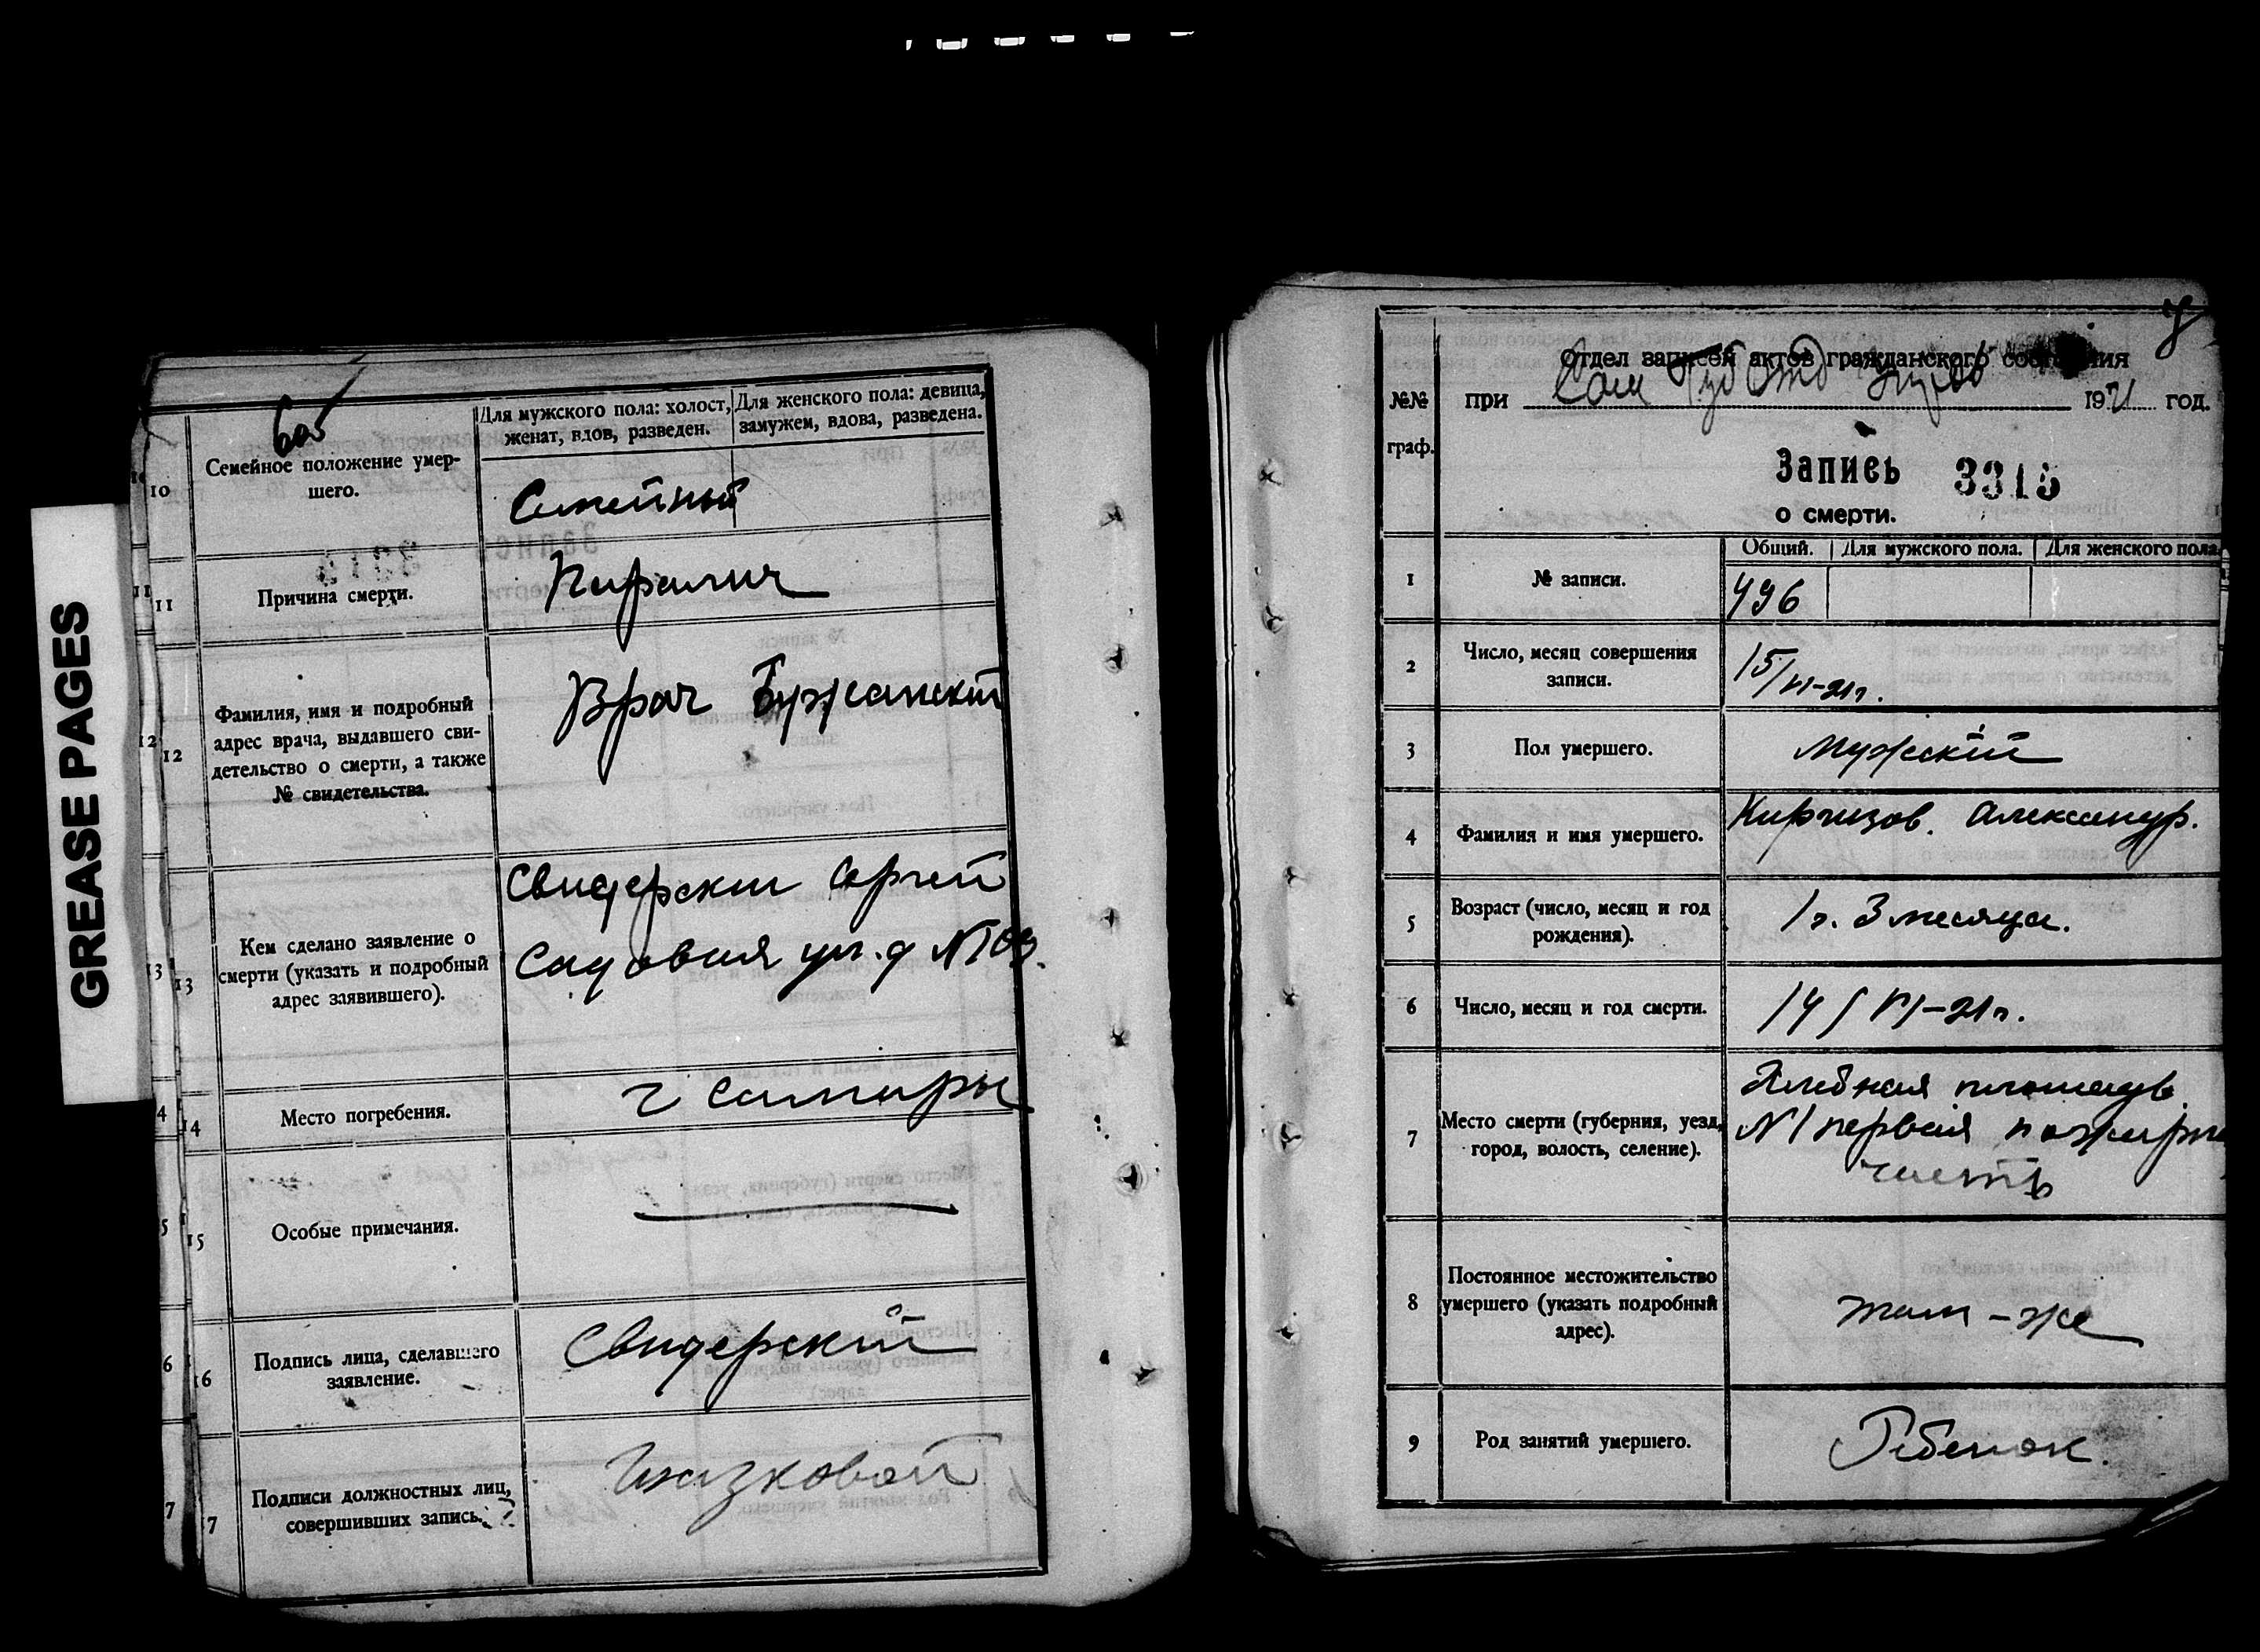 GREASE PAGES
Семейное положение умер-
шего.
Для мужского пола: холост,
женат, вдов, разведен.
Для женского пола: девица,
замужем, вдова, разведена.
10
10
Семейный
11
11
Причина смерти.
Паралич
12
12
Фамилия, имя и подробный
адрес врача, выдавшего сви-
детельство о смерти, а также
№ свидетельства.
Врач
13
13
Кем сделано заявление о
смерти (указать и подробный
адрес заявившего).
Свидерский Сергей
Садовая ул. д №109.
4
14
Место погребения.
г Самары
5
15
Особые примечания.
6
16
Подпись лица, сделавшего
заявление.
Свидерскій
7
7
Подписи должностных лиц,
совершивших запись.
Отдел записей актов гражданского состояния
№№
граф.
при Сам Губ Отд 1921 год.
Запись 3315
о смерти.
Общий. Для мужского пола. Для женского пола
1
№ записи.
496
2
Число, месяц совершения
записи.
15/VI-21г.
3
Пол умершего.
Мужскій
4
Фамилия и имя умершего.
Киргизов. Александр.
5
Возраст (число, месяц и год
рождения).
1г. 3 месяца.
6
Число, месяц и год смерти.
14/VI-21г.
7
Место смерти (губерния, уезд,
город, волость, селение).
Хлебная площадь
№1 первая пожарна
часть
8
Постоянное местожительство
умершего (указать подробный
адрес).
там-же
9
Род занятий умершего.
Ребенок.